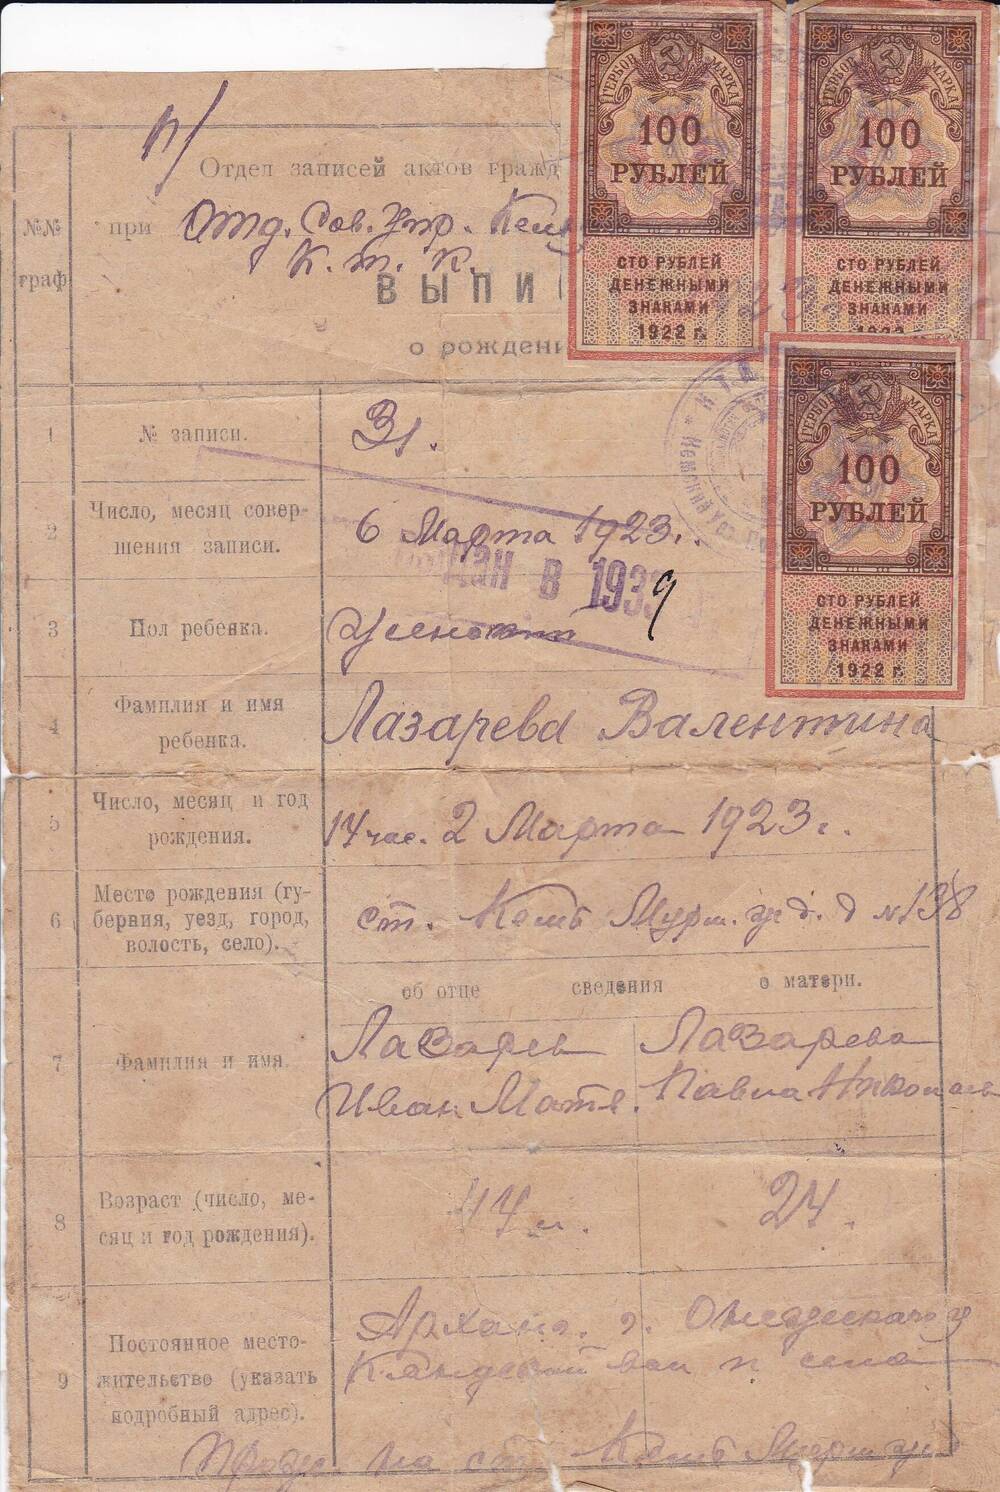 ГЕРБОВ. МАРКА
100
РУБЛЕЙ
СТО РУБЛЕЙ
ДЕНЕЖНЫМИ
ЗНАКАМИ
1922 г.
ГЕРБОВ. МАРКА
100
РУБЛЕЙ
СТО РУБЛЕЙ
ДЕНЕЖНЫМИ
ЗНАКАМИ
1922 г.
ГЕРБОВ. МАРКА
100
РУБЛЕЙ
СТО РУБЛЕЙ
ДЕНЕЖНЫМИ
ЗНАКАМИ
1922 г.
Отдел записей актов гражд
№№ граф
при Отд. Сов. Упр. Кем
К. т. к.
ВЫПИ
о рождени
1 № записи. 31.
2 Число, месяц совер-
шения записи. 6 Марта 1923 г.
в 1939
3 Пол ребенка. Женск
4 Фамилия и имя
ребенка. Лазарева Валентина
5 Число, месяц и год
рождения. 14 час. 2 Марта 1923 г.
6 Место рождения (гу-
берния, уезд, город,
волость, село). ст. Кемь Мурм. ж д. д № 138
об отце сведения о матери.
7 Фамилия и имя. Лазарев Лазарева
Иван Матв. Павла Николаев
8 Возраст (число, ме-
сяц и год рождения). 44 24.
9 Постоянное место-
жительство (указать
подробный адрес). Архан. г. Онежского у
Кяндской вол и села
на ст. Кемь Мурм жд